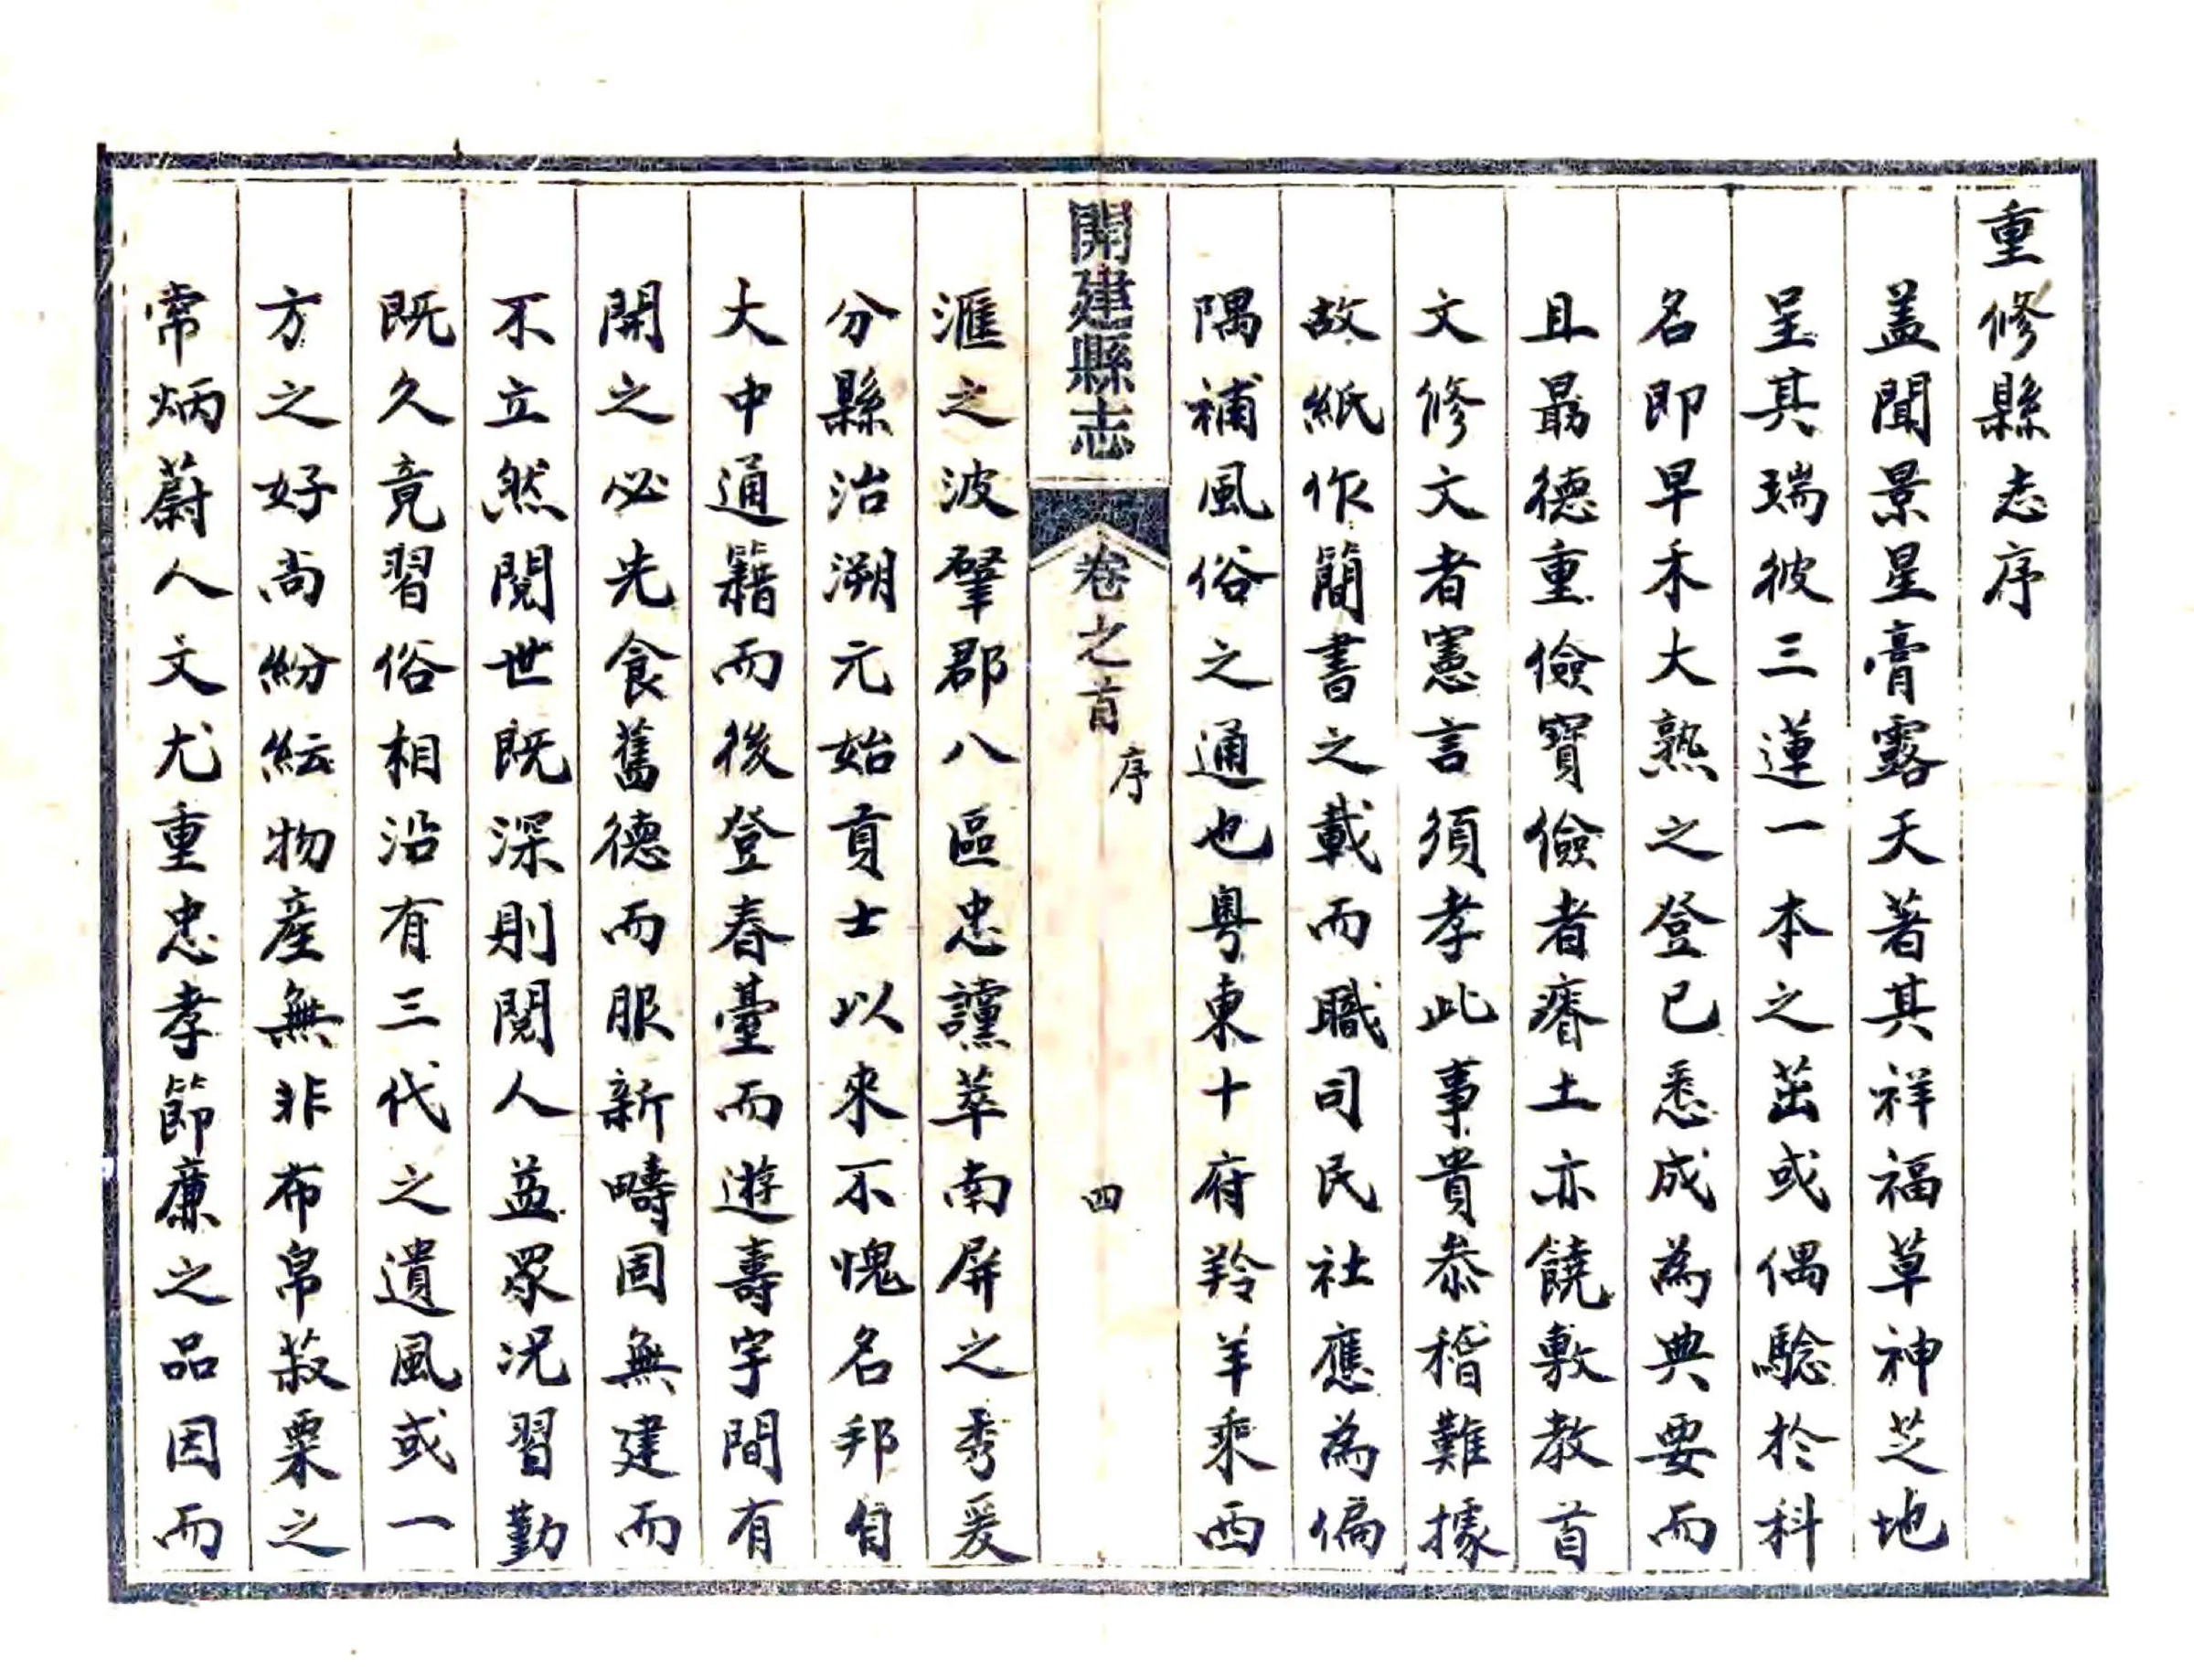 重修縣志序
蓋聞景星膏露天著其祥福草神芝地
呈其瑞彼三蓮一本之茁或偶騐於科
名即早禾大熟之登已悉成為典要而
且最德重儉寳儉者瘠土亦饒敷教首
文修文者憲言須孝此事貴叅稽難據
故紙作簡書之載而職司民社應為偏
隅補風俗之通也粤東十府羚羊乘西
開建縣志 卷之首 序 四
滙之波肇郡八區忠讜萃南屏之秀爰
分縣治溯元始貢士以來不愧名邦自
大中通籍而後登春臺而遊壽宇間有
開之必先食舊德而服新疇固無建而
不立然閱世既深則閱人益眾况習勤
既久竟習俗相沿有三代之遺風或一
方之好尚紛紜物産無非布帛菽粟之
常炳蔚人文尤重忠孝節廉之品因而